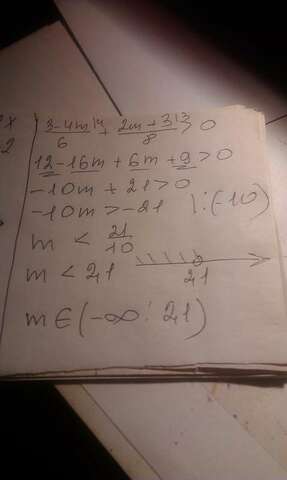 3-4m|4/6 + 2m+3|3/8 > 0
12-16m+6m+9>0
-10m+21>0
-10m>-21 |:(-10)
m < 21/10
m < 2,1
2,1
m∈(-∞; 2,1)